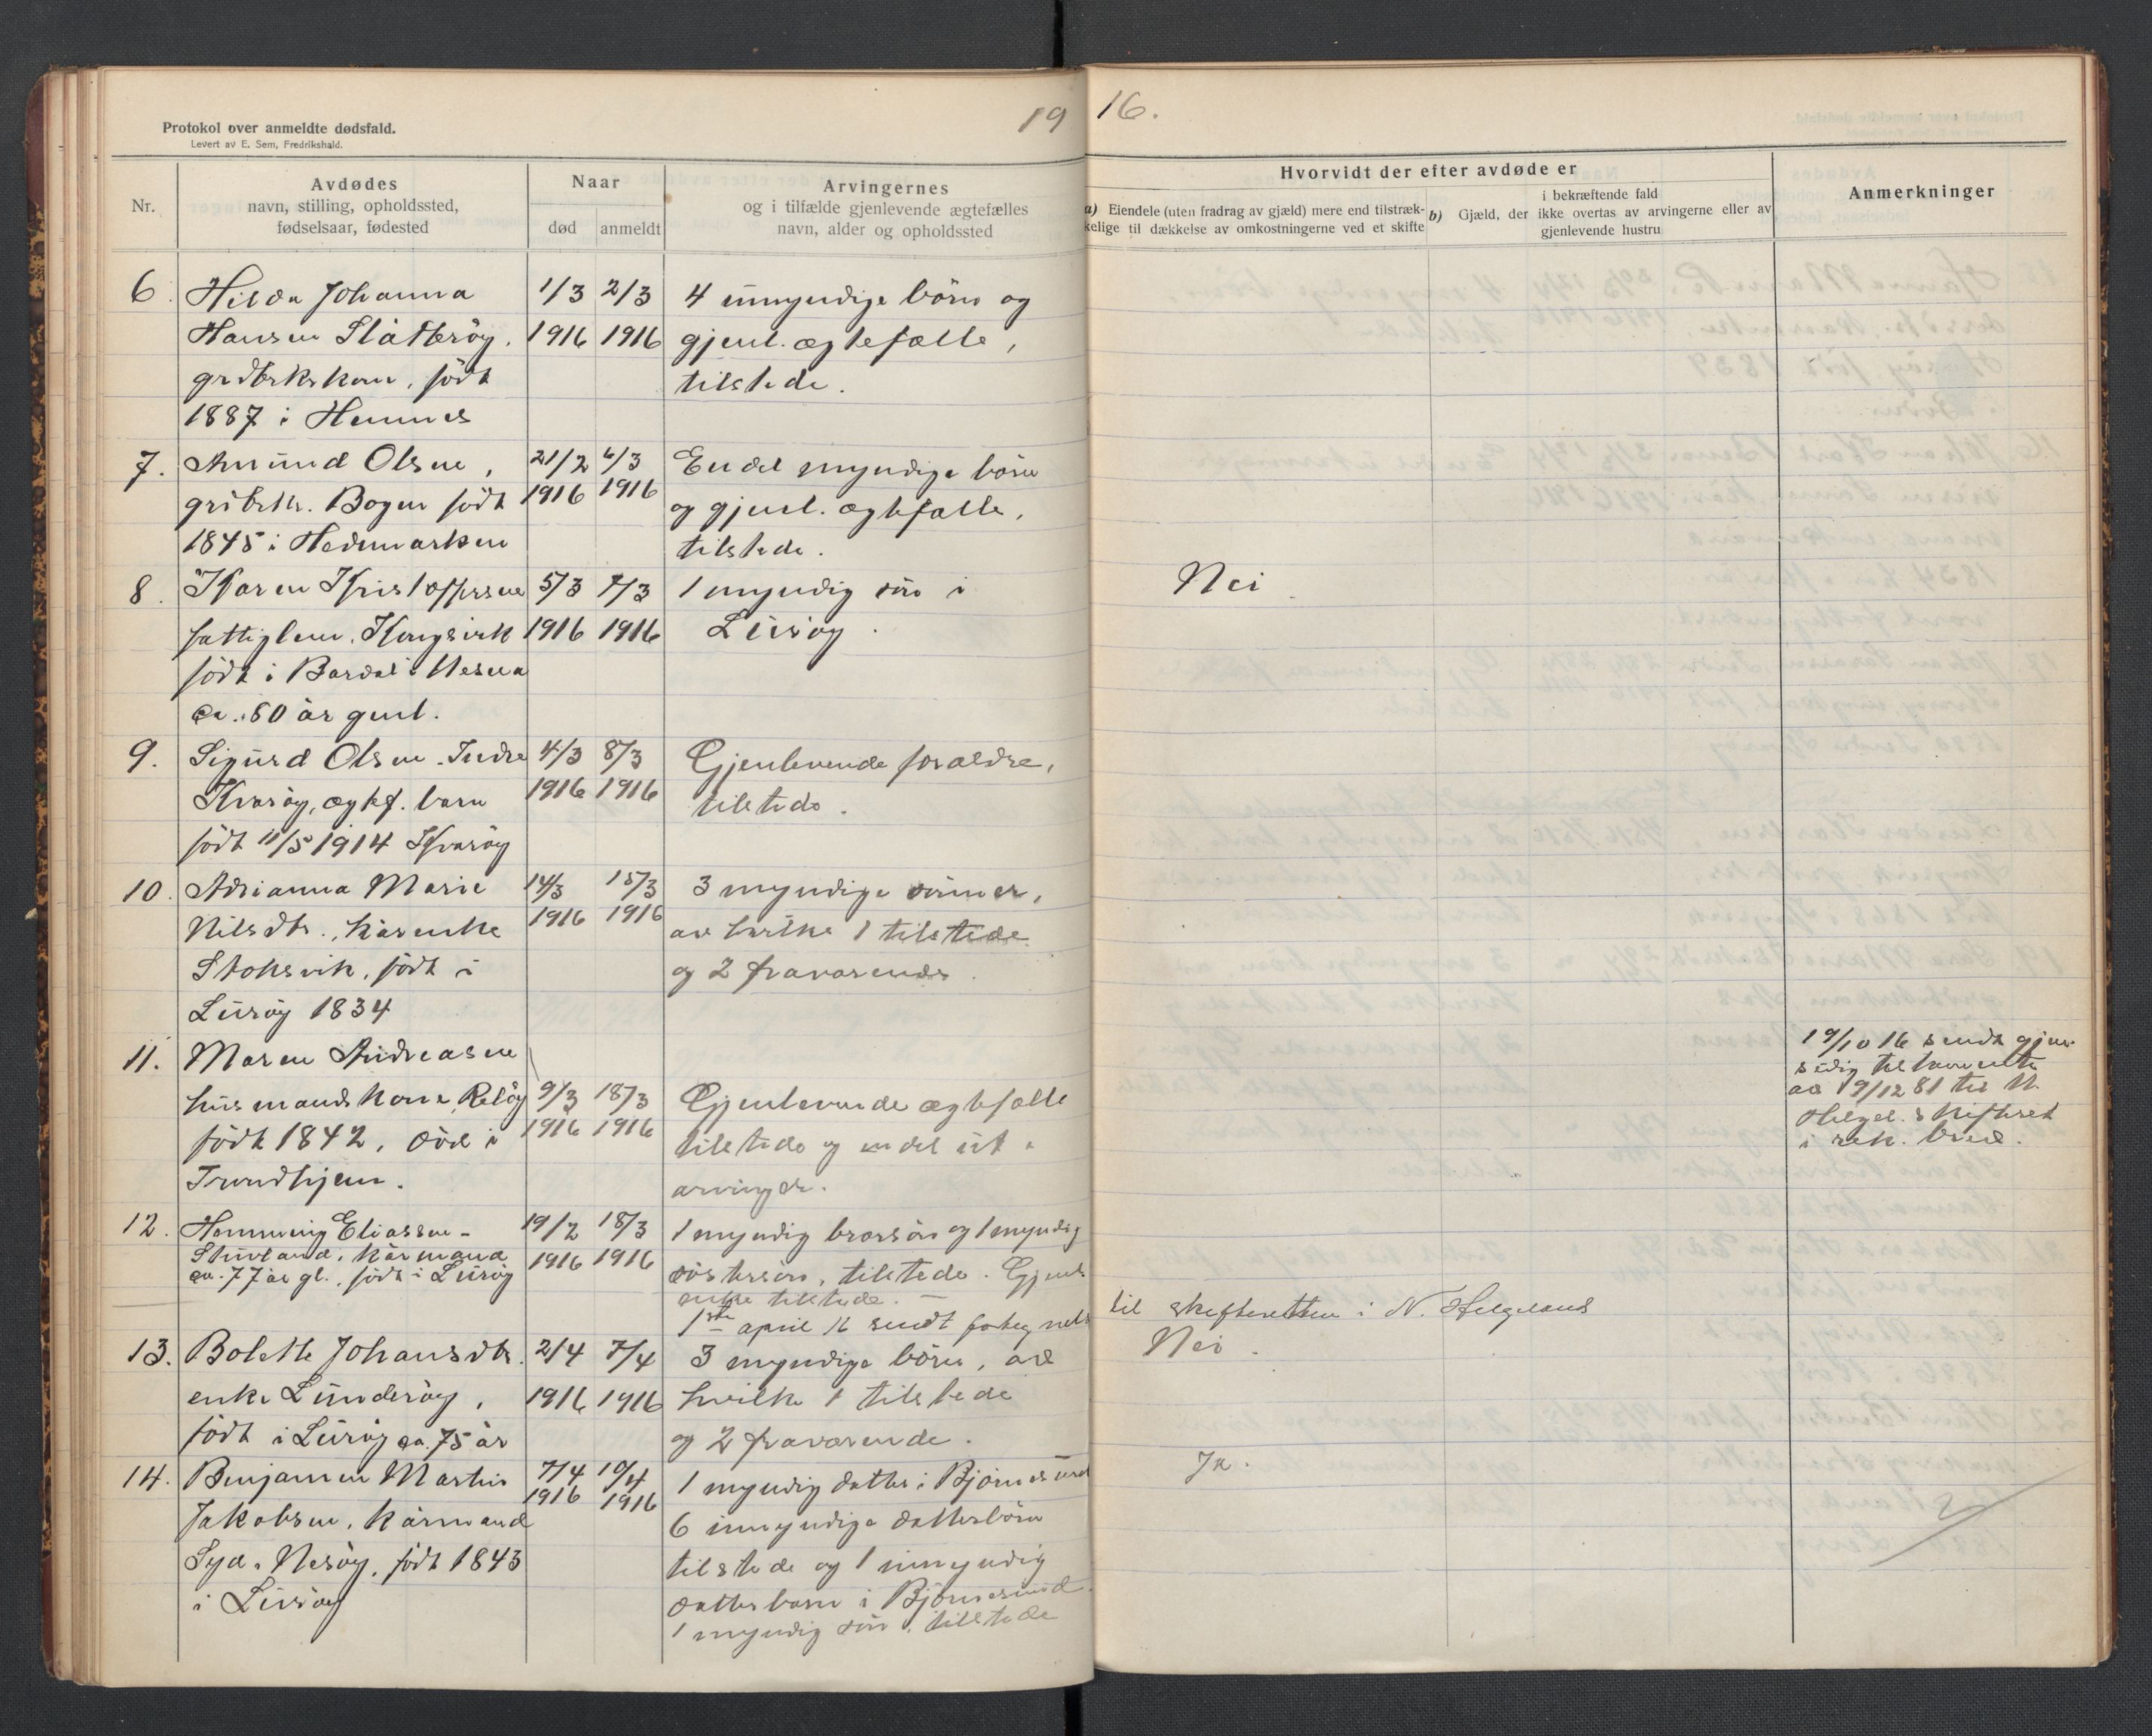 Protokol over anmeldte dødsfald.
Levert av E. Sem, Fredrikshald.
19 16.
Nr.
Avdødes
navn, stilling, opholdssted,
fødselsaar, fødested
Naar
død anmeldt
Arvingernes
og i tilfælde gjenlevende ægtefælles
navn, alder og opholdssted
Hvorvidt der efter avdøde er
a) Eiendele (uten fradrag av gjæld) mere end tilstræk-
kelige til dækkelse av omkostningerne ved et skifte
b) Gjæld, der
i bekræftende fald
ikke overtas av arvingerne eller av
gjenlevende hustru
Anmerkninger
6. Hilda Johanna 1/3 2/3 4 umyndige börn og
Hansen Slåtterøy, 1916 1916 gjenl. ægtefælle,
grdbrkrkone, född tilstede.
1887 i Hemnes
7. Amund Olsen, 21/2 6/3 En del myndige börn
grdbrkr. Bogen född 1916 1916 og gjenl. ægtefælle,
1845 i Hedemarken tilstede.
8. Karen Kristoffersen 5/3 7/3 1 myndig sön i Nei
fattiglem, Kongsvik 1916 1916 Luröy.
född i Bardal i Nesna
ca. 80 år gml.
9. Sigurd Olsen. Indre 4/3 8/3 Gjenlevende forældre,
Kvaröy, ægtef. barn 1916 1916 tilstede.
född 11/5 1914 Kvaröy
10. Adrianna Marie 14/3 15/3 3 myndige sönner,
Nilsdtr., kårenke 1916 1916 av hvilke 1 tilstede
Stoksvik, född i og 2 fraværende.
Luröy 1834
11. Maren Andreasen
husmandskone, Relöy 9/3 18/3 Gjenlevende ægtefælle
född 1842, död i 1916 1916 tilstede og en del ut-
Trondhjem. arvinger.
19/10 16 sendt gjen-
sidig testamente
av 19/12 81 til N.
Helgel. skifteret
i rek. brev.
12. Hemming Eliassen - 19/2 18/3 1 myndig brorsön og 1 myndig
Stuvland, kårmand 1916 1916 sösterson, tilstede. Gjenl.
ca. 77 år gl., född i Luröy enke tilstede. -
1ste april 16 sendt fortegnelse til skifteretten i N. Helgeland
13. Bolette Johansdtr. 2/4 7/4 3 myndige börn, av Nei.
enke Lunderöy, 1916 1916 hvilke 1 tilstede
född i Luröy ca. 75 år og 2 fraværende.
14. Benjamin Martin 7/4 10/4 1 myndig datter i Björnesund Ja.
Jakobsen, kårmand 1916 1916 6 umyndige datterbörn
Syd-Nesöy, född 1843 tilstede og 1 umyndig
i Luröy datterbarn i Björnesund.
1 myndig sön, tilstede